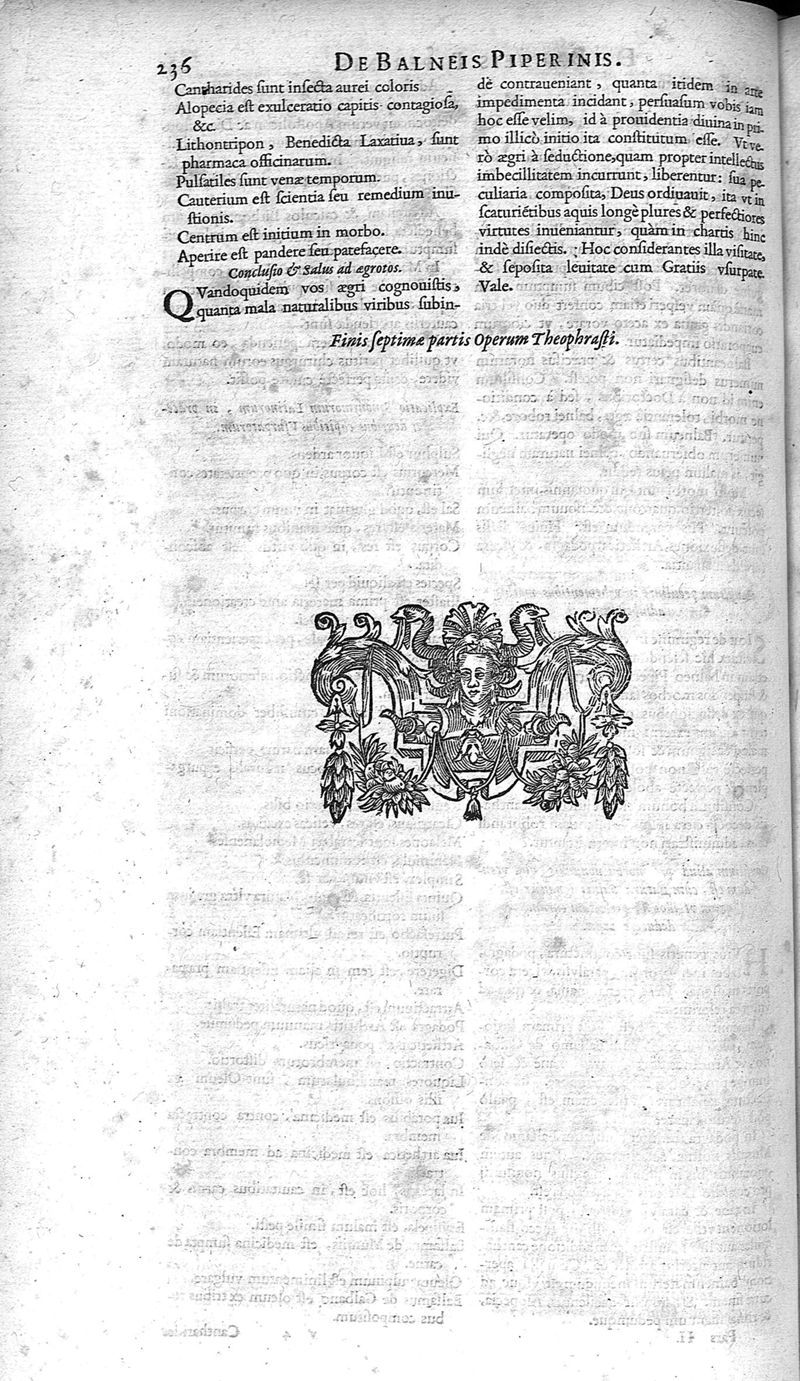 236
DE BALNEIS PIPERINIS.
Cantharides sunt insecta aurei coloris
Alopecia est exulceratio capitis contagiosa,
&c.
Lithontripon, Benedicta Laxatiua, sunt
pharmaca officinarum.
Pulsatiles sunt venæ temporum.
Cauterium est scientia seu remedium inu-
stionis.
Centrum est initium in morbo.
Aperire est pandere seu patefacere.
Conclusio & Salus ad ægrotos.
QVandoquidem vos ægri cognouistis,
quanta mala naturalibus viribus subin-
dè contraueniant, quanta itidem in arte
impedimenta incidant, persuasum vobis iam
hoc esse velim, id à prouidentia diuina in pri-
mo illicò initio ita constitutum esse. Vt ve-
rò ægri à seductione, quam propter intellectus
imbecillitatem incurrunt, liberentur: sua pe-
culiaria composita, Deus ordinauit, ita vt in
scaturiētibus aquis longè plures & perfectiores
virtutes inueniantur, quàm in chartis hinc
indè disiectis. Hoc considerantes illa visitate,
& seposita leuitate cum Gratiis vsurpate.
Vale.
Finis septimæ partis Operum Theophrasti.